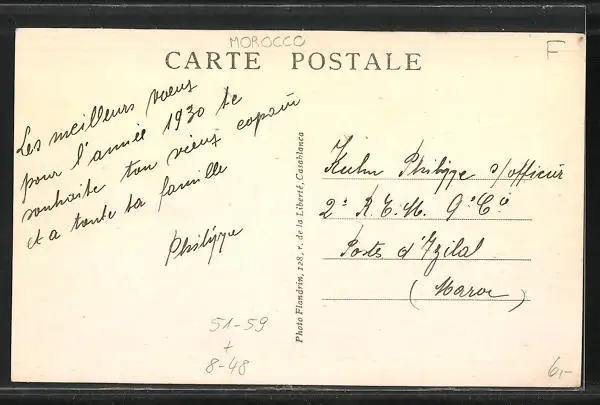 MOROCCO
F
CARTE POSTALE
Les meilleurs vœux
pour l'année 1930 te
souhaite ton vieux copain
et a toute ta famille
Philippe
Kuhn Philippe s/officier
2e R.T.M. 9e Cie
Poste d'Azilal
(Maroc)
Photo Flandrin, 128, r. de la Liberté, Casablanca
51-59
+
8-48
6,-